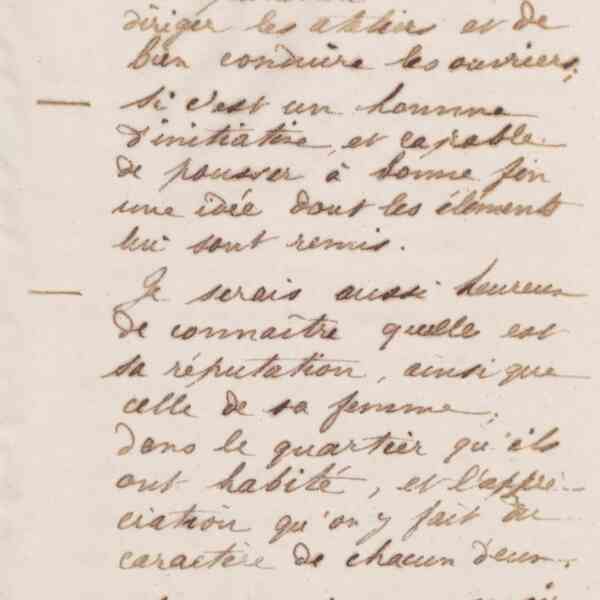 diriger les ateliers et de
bien conduire les ouvriers;
— Si c'est un homme
d'initiative, et capable
de pousser à bonne fin
une idée dont les éléments
lui sont remis.
— Je serais aussi heureux
de connaître quelle est
sa réputation, ainsi que
celle de sa femme,
dans le quartier qu'ils
ont habité, et l'appré-
ciation qu'on y fait du
caractère de chacun d'eux.